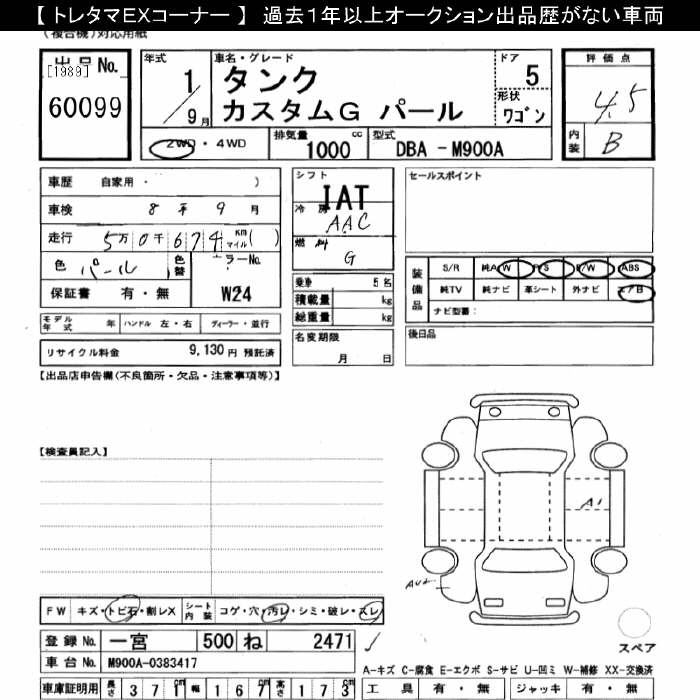 【 トレタマEXコーナー 】 過去１年以上オークション出品歴がない車両
(複合機)対応用紙
出品No.
[1989]
60099
年式
1/9月
車名・グレード
タンク
カスタムG パール
ドア
5
形状
ワゴン
評価点
4.5
内装
B
2WD・4WD
排気量
1000 cc
型式
DBA -M900A
車歴 自家用・ )
車検 8年9月
走行 5万0千674 km マイル( )
色 パール
色替
カラーNo.
W24
保証書 有・無
シフト
IAT
冷房
AAC
燃料
G
乗車 5名
積載量 kg
総重量 kg
セールスポイント
装備品
S/R 純AW P/S P/W ABS
純TV 純ナビ 革シート 外ナビ エアB
ナビ型番：
モデル年式 年 ハンドル 左・右 ディーラー・並行
リサイクル料金 9,130円 預託済
名変期限
月 日
後日品
【出品店申告欄(不良箇所・欠品・注意事項等)】
【検査員記入】
A1
AU2
FW キズ・トビ石・割レX
シート内装 コゲ・穴・汚レ・シミ・破レ・スレ
登録No. 一宮 500 ね 2471
車台No. M900A-0383417
車庫証明用 長さ 371cm 幅 167cm 高さ 173cm
スペア
A-キズ C-腐食 E-エクボ S-サビ U-凹ミ W-補修 XX-交換済
工具 有・無 ジャッキ 有・無